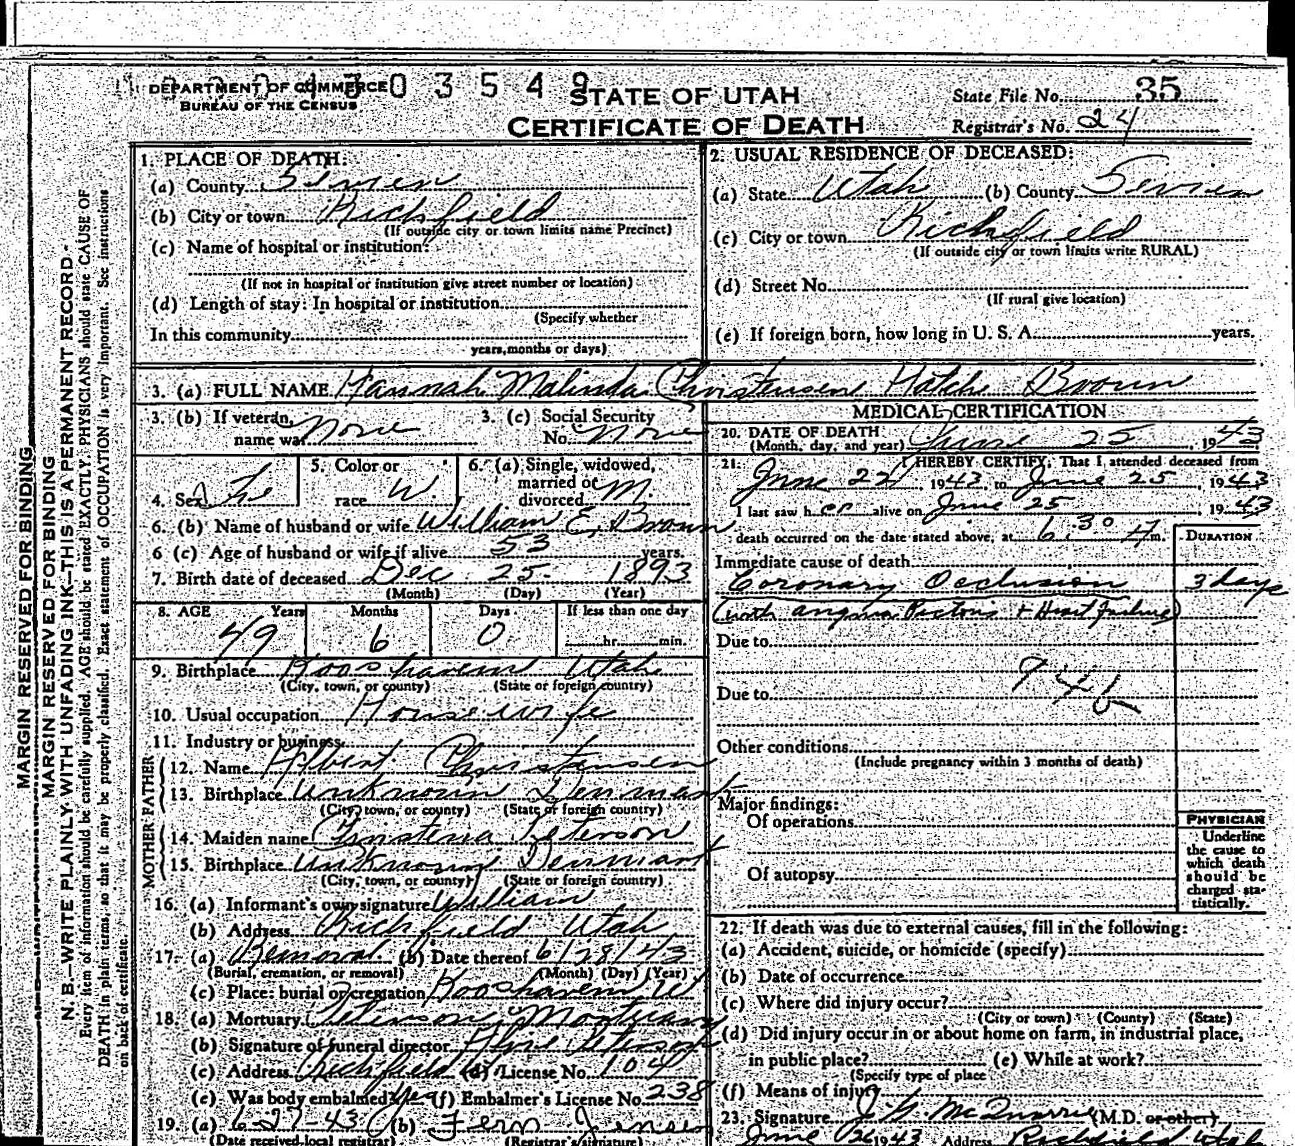 DEPARTMENT OF COMMERCE
BUREAU OF THE CENSUS
0 3 5 4 9
STATE OF UTAH
CERTIFICATE OF DEATH
State File No. 35
Registrar's No. 24
MARGIN RESERVED FOR BINDING
MARGIN RESERVED FOR BINDING
N. B.—WRITE PLAINLY WITH UNFADING INK—THIS IS A PERMANENT RECORD.
Every item of information should be carefully supplied. AGE should be stated EXACTLY. PHYSICIANS should state CAUSE OF
DEATH in plain terms, so that it may be properly classified. Exact statement of OCCUPATION is very important. See instructions
on back of certificate.
1. PLACE OF DEATH:
(a) County Sevier
(b) City or town Richfield
(If outside city or town limits name Precinct)
(c) Name of hospital or institution:
(If not in hospital or institution give street number or location)
(d) Length of stay: In hospital or institution
(Specify whether
In this community
years, months or days)
2. USUAL RESIDENCE OF DECEASED:
(a) State Utah (b) County Sevier
(c) City or town Richfield
(If outside city or town limits write RURAL)
(d) Street No.
(If rural give location)
(e) If foreign born, how long in U. S. A. years.
3. (a) FULL NAME Hannah Malinda Christensen Hatch Brown
3. (b) If veteran, name war None
3. (c) Social Security No. None
4. Sex Fe
5. Color or race W.
6. (a) Single, widowed, married or divorced M.
6. (b) Name of husband or wife William E. Brown
6 (c) Age of husband or wife if alive 53 years.
7. Birth date of deceased Dec 25 - 1893
(Month) (Day) (Year)
8. AGE Years Months Days If less than one day
49 6 0 hr. min.
9. Birthplace Koosharem Utah
(City, town, or county) (State or foreign country)
10. Usual occupation Housewife
11. Industry or business
FATHER
12. Name Albert Christensen
13. Birthplace Unknown Denmark
(City, town, or county) (State or foreign country)
MOTHER
14. Maiden name Peterson
15. Birthplace Unknown Denmark
(City, town, or county) (State or foreign country)
16. (a) Informant's own signature William
(b) Address Richfield Utah
17. (a) Removal (b) Date thereof 6/28/43
(Burial, cremation, or removal) (Month) (Day) (Year)
(c) Place: burial or cremation Koosharem Ut
18. (a) Mortuary Mortuary
(b) Signature of funeral director Peterson
(c) Address Richfield (d) License No. 104
(e) Was body embalmed? Yes (f) Embalmer's License No. 238
19. (a) 6-27-43 (b) Fern Jensen
(Date received local registrar) (Registrar's signature)
MEDICAL CERTIFICATION
20. DATE OF DEATH
(Month, day, and year) June 25, 1943
21. I HEREBY CERTIFY, That I attended deceased from
June 22, 1943, to June 25, 1943
I last saw her alive on June 25, 1943
death occurred on the date stated above, at 6:30 m.
DURATION
Immediate cause of death
Coronary Occlusion 3 days
(with angina Pectoris + Heart Failure)
Due to
94b
Due to
Other conditions
(Include pregnancy within 3 months of death)
Major findings:
Of operations
Of autopsy
PHYSICIAN
Underline
the cause to
which death
should be
charged sta-
tistically.
22. If death was due to external causes, fill in the following:
(a) Accident, suicide, or homicide (specify)
(b) Date of occurrence
(c) Where did injury occur?
(City or town) (County) (State)
(d) Did injury occur in or about home on farm, in industrial place,
in public place? (e) While at work?
(Specify type of place
(f) Means of injury
23. Signature J. G. McQuarrie (M.D. or other)
June 26 1943 Address Richfield Utah